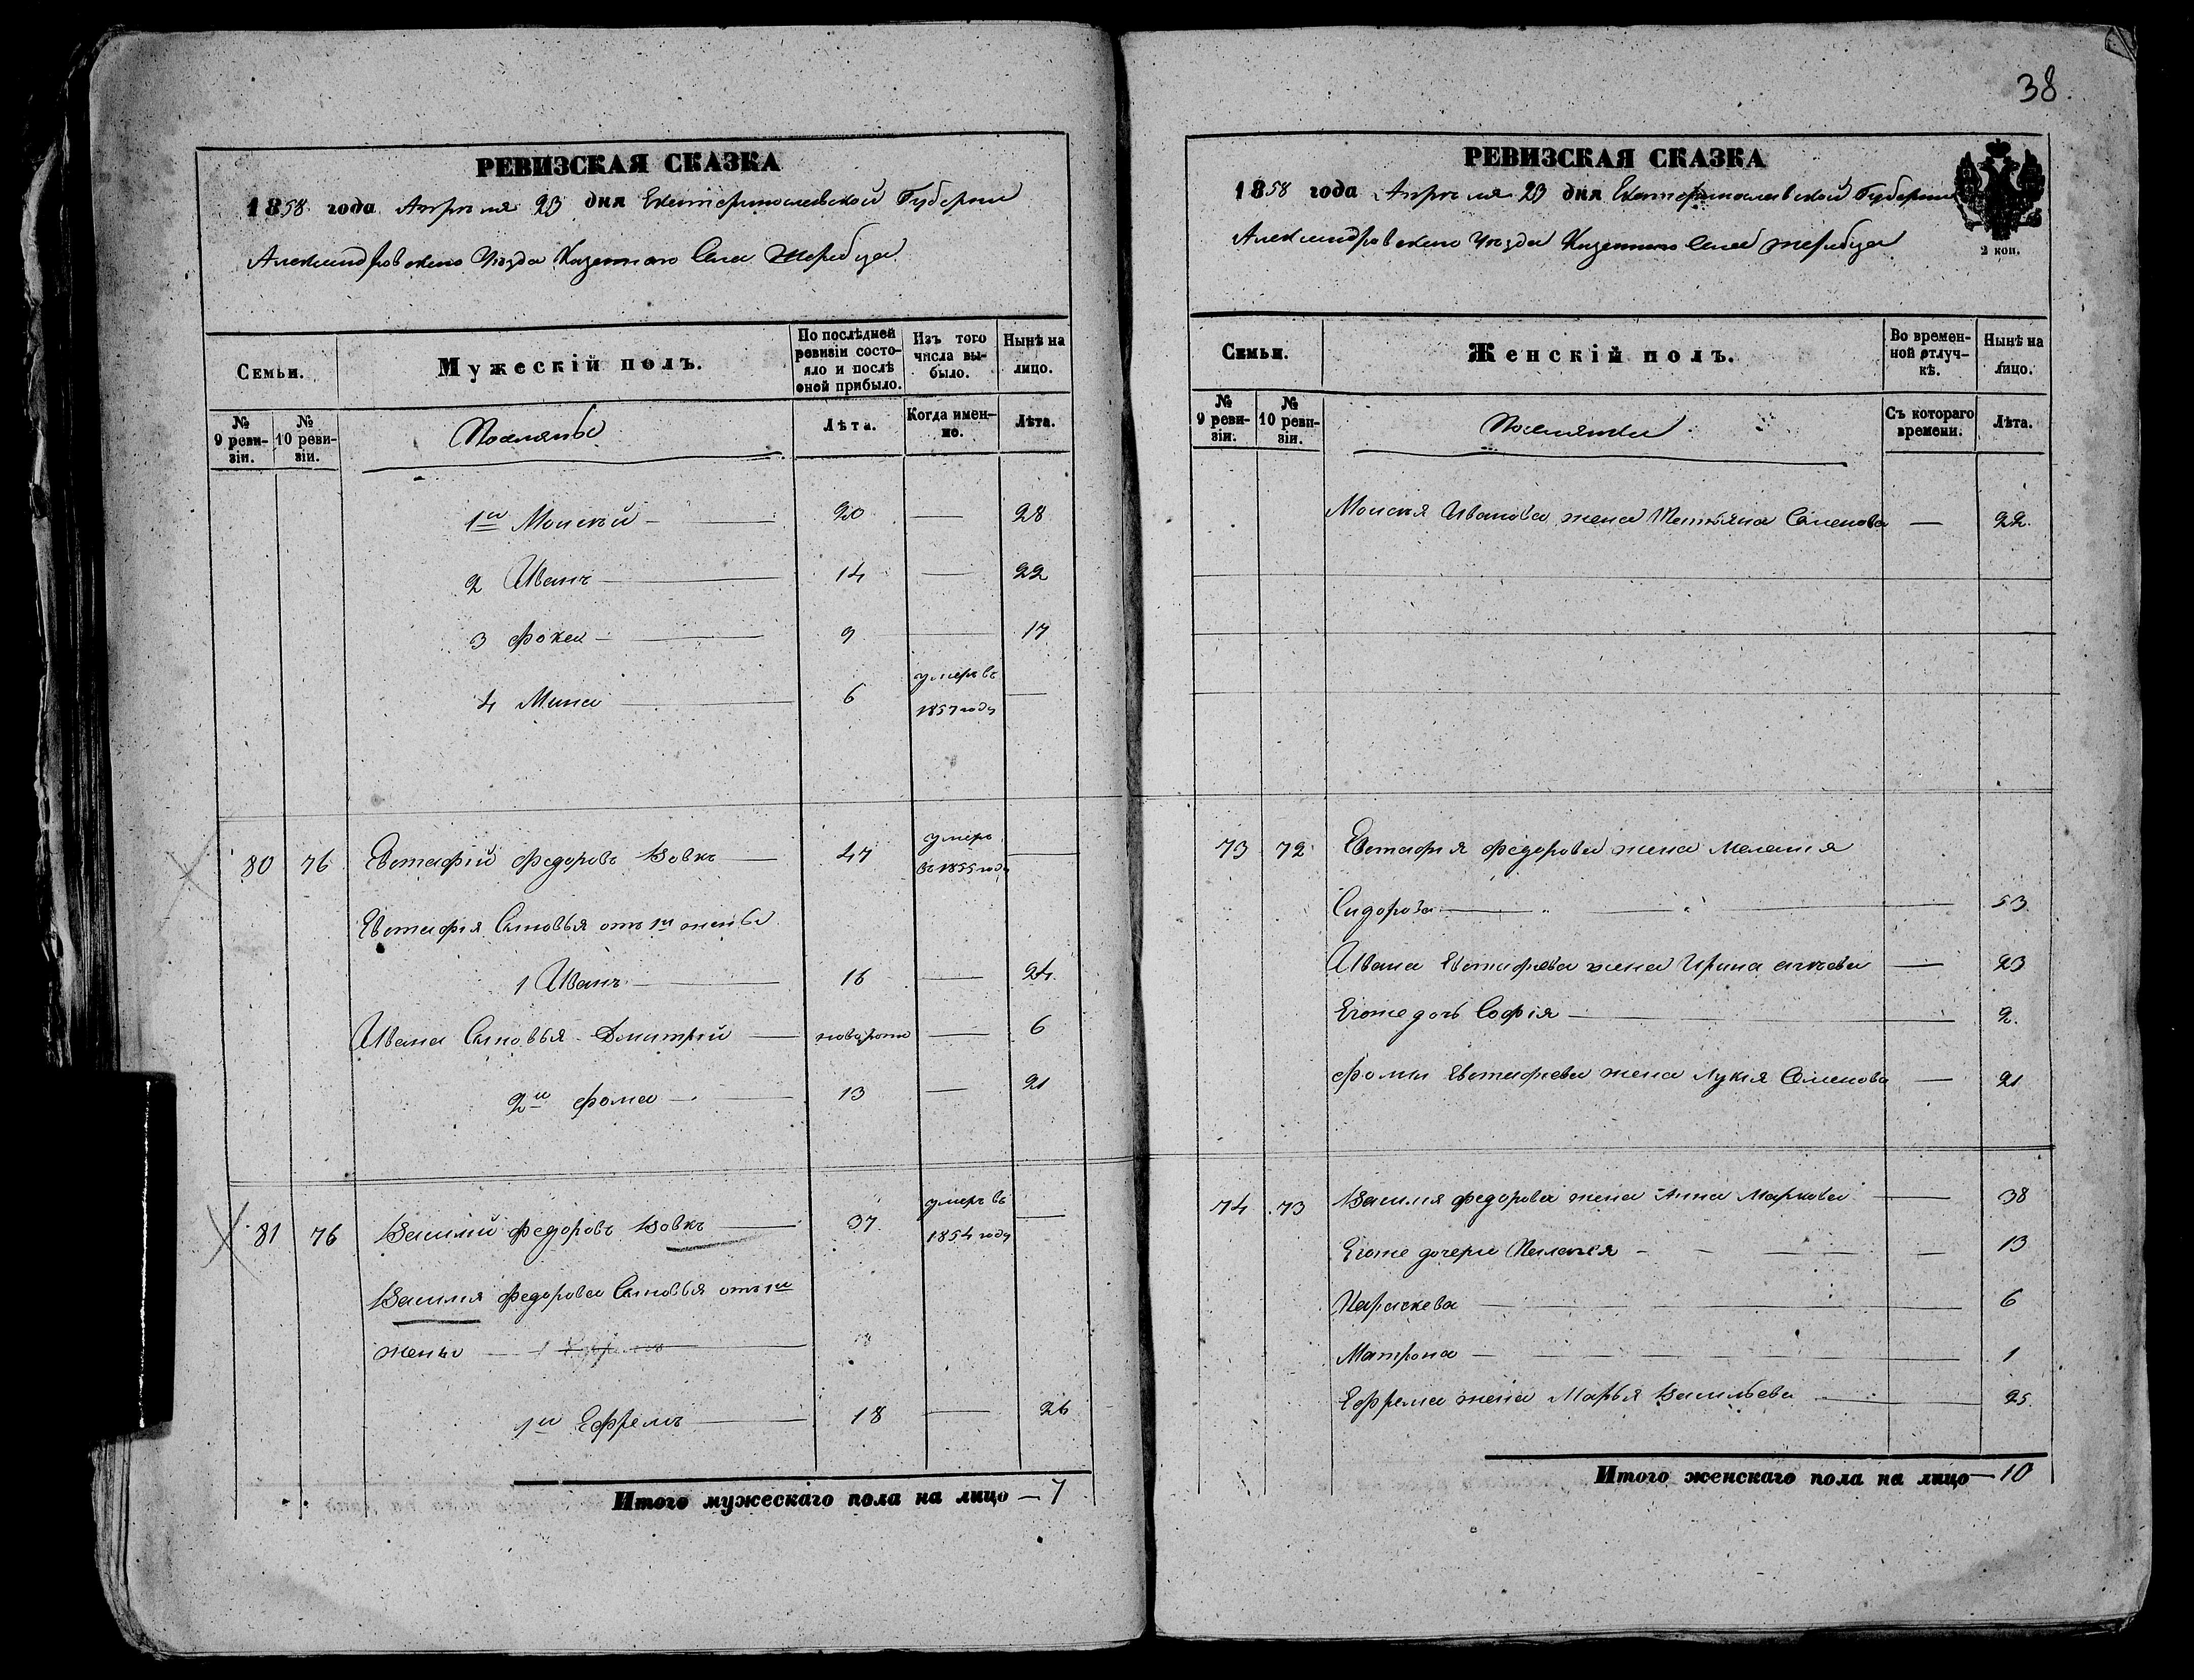 38
РЕВИЗСКАЯ СКАЗКА
1858 года Апреля 23 дня Екатеринославской Губернии
Александровского Уезда Казенного Села Жеребца
Семьи.
Мужескій полъ.
По послѣдней ревизіи состояло и послѣ оной прибыло.
Изъ того числа выбыло.
Нынѣ на лицо.
№ 9 ревизіи.
№ 10 ревизіи.
Поселяне
Лѣта.
Когда именно.
Лѣта.
1й Моисей — 20 — 28
2 Иванъ — 14 — 22
3 Фока — 9 17
4 Мина — 6 умеръ въ 1857 году —
80 76 Евстафій Федоровъ Вовкъ — 47 умеръ въ 1855 году —
Евстафія Сыновья отъ 1й жены
1 Иванъ — 16 — 24
Ивана Сыновья Дмитрій — новорож — 6
2й Фома — 13 — 21
81 76 Василий Федоровъ Вовкъ — 37 умеръ въ 1854 году —
Василия Федорова Сыновья отъ 1й
жены —
1й Ефремъ — 18 — 26
Итого мужескаго пола на лицо — 7
РЕВИЗСКАЯ СКАЗКА
2 коп.
1858 года Апреля 23 дня Екатеринославской Губернии
Александровского Уезда Казенного Села Жеребца
Семьи.
Женскій полъ.
Во временной отлучкѣ.
Нынѣ на лицо.
№ 9 ревизіи.
№ 10 ревизіи.
Поселянки
Съ котораго времени.
Лѣта.
Моисея Иванова жена Татьяна Семенова — 22.
73 72 Евстафия Федорова жена Мелания
Сидорова — 53
Ивана Евстафьева жена Ирина — 23
Егоже дочь Софія — 2.
Фомы Евстафьева жена Лукия Семенова — 21
74 73 Василия Федорова жена Анна Маркова — 38
Егоже дочери Пелагея — 13
Параскева — 6
Матрона — 1
Ефрема жена Марья Васильева — 25.
Итого женскаго пола на лицо — 10